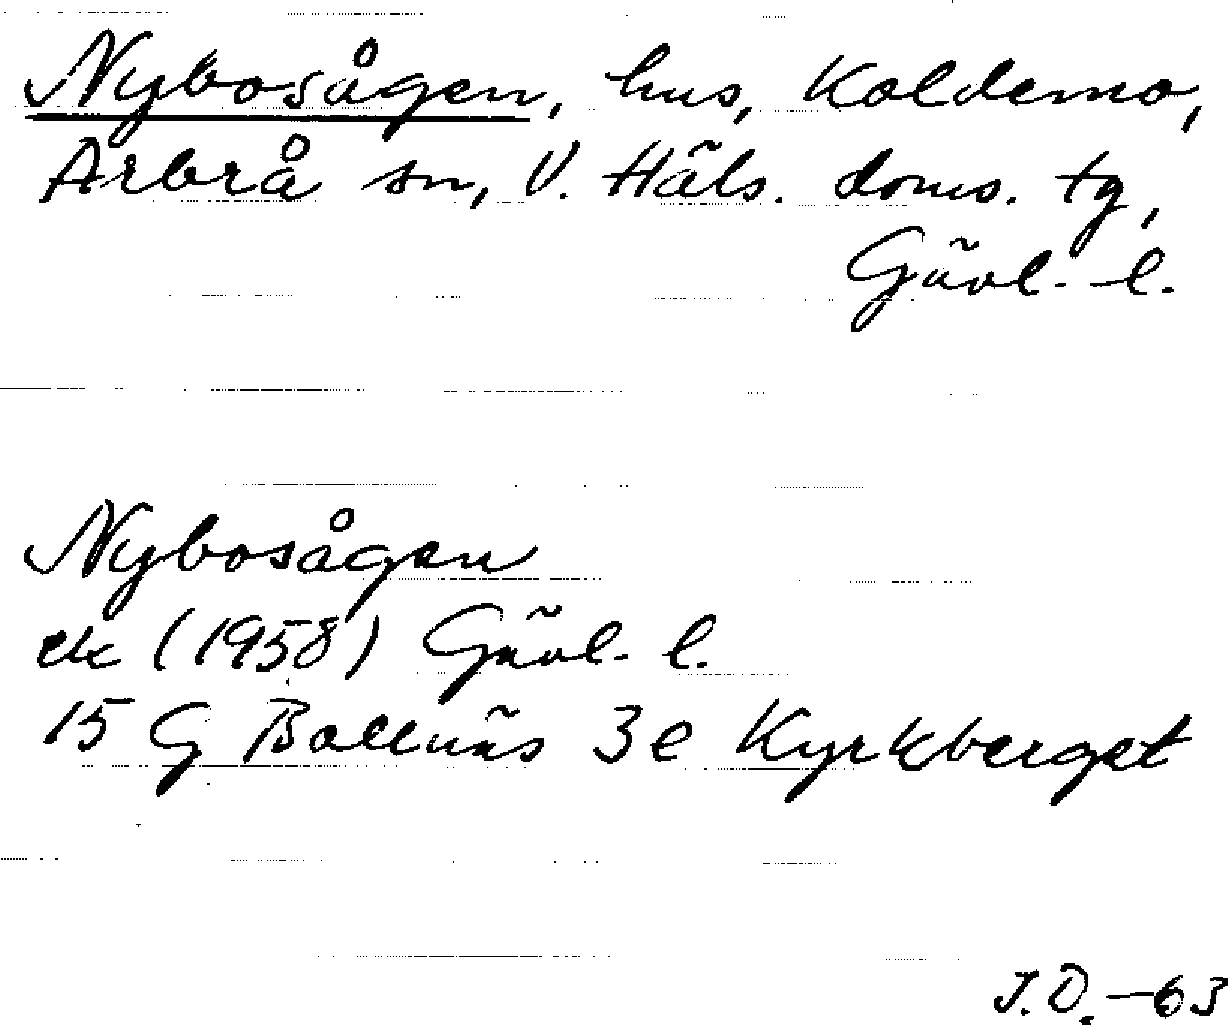 Nybosågen, hus, Koldemo,
Arbrå sn, V. Häls. doms. tg,
Gävl. l.
Nybosågen
ek (1958) Gävl. l.
15 G Bollnäs 3e Kyrkberget
J.Ö.-63